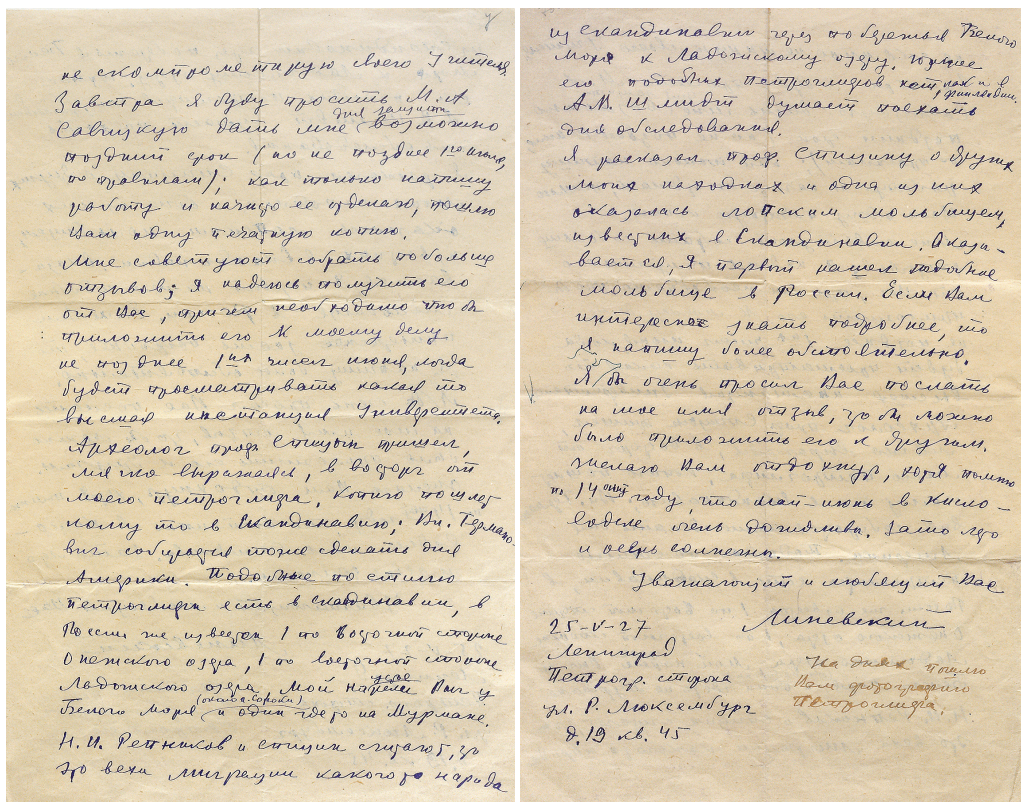 не скомпрометирую своего Учителя.
Завтра я буду просить М. А
Савицкую дать мне для защиты возможно
поздний срок (но не позднее 1го июля,
по правилам); как только напишу
работу и начисто ее отделаю, пошлю
Вам одну печатную копию.
Мне советуют собрать побольше
отзывов; я надеюсь получить его
от Вас, причем необходимо чтобы
приложить его к моему делу
не позднее 1ых чисел июня, когда
будет просматривать какая то
высшая инстанция Университета.
Археолог проф. Спицын пришел,
мягко выражаясь, в восторг от
моего петроглифа, копию пошлет
кому то в Скандинавию; Вл. Германо-
вич собирается тоже сделать для
Америки. Подобные по стилю
петроглифы есть в Скандинавии, в
России же известен 1 по восточной стороне
Онежского озера, 1 по восточной стороне
Ладожского озера, Мой устье Выг у
Белого моря (около г. Сороки) и один где то на Мурмане.
Н. И. Репников и Спицин считают, что
это вехи миграции какого то народа
из Скандинавии через побережья Белого
моря к Ладожскому озеру. Южнее
его подобных петроглифов нет, как и в Финляндии.
А. М. Шмидт думает поехать
для обследования.
Я расказал проф. Спицину о других
моих находках и одна из них
оказалась лопским мольбищем,
известных в Скандинавии. Оказы-
вается, я первый нашел подобное
мольбище в России. Если Вам
интересно знать подробнее, то
я напишу более обстоятельно.
Я бы очень просил Вас послать
на мое имя отзыв, чтобы можно
было приложить его к другим.
Желаю Вам отдохнуть, хотя помню
по 14 году, что май-июнь в Кисло-
водске очень дождливы. Зато лето
и осень солнечны.
Уважающий и любящий Вас
Линевский
25-V-27
Ленинград
Петрогр. сторона
ул. Р. Люксембург
д. 19 кв. 45
На днях пошлю
Вам фотографию
Петроглифа.